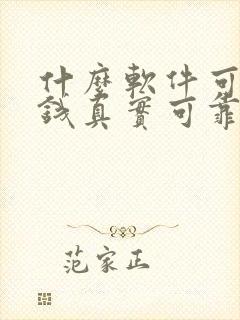 什麼軟件可
錢真實可靠
范家正